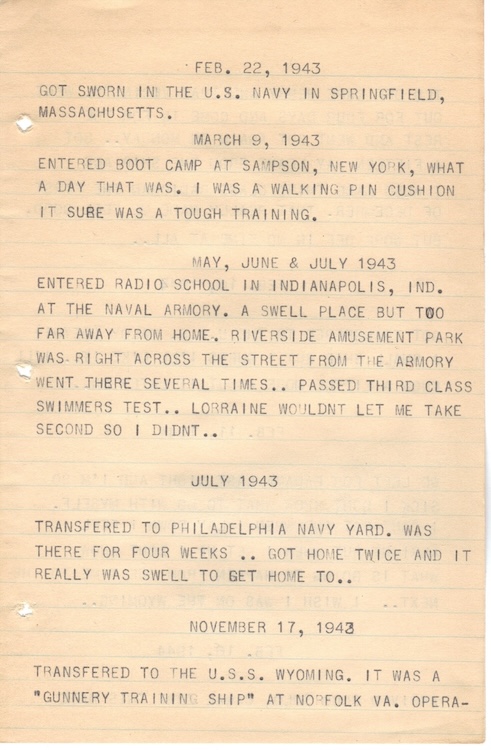 FEB. 22, 1943
GOT SWORN IN THE U.S. NAVY IN SPRINGFIELD,
MASSACHUSETTS.
MARCH 9, 1943
ENTERED BOOT CAMP AT SAMPSON, NEW YORK, WHAT
A DAY THAT WAS. I WAS A WALKING PIN CUSHION
IT SURE WAS A TOUGH TRAINING.
MAY, JUNE & JULY 1943
ENTERED RADIO SCHOOL IN INDIANAPOLIS, IND.
AT THE NAVAL ARMORY. A SWELL PLACE BUT TOO
FAR AWAY FROM HOME. RIVERSIDE AMUSEMENT PARK
WAS RIGHT ACROSS THE STREET FROM THE ARMORY
WENT THERE SEVERAL TIMES.. PASSED THIRD CLASS
SWIMMERS TEST.. LORRAINE WOULDNT LET ME TAKE
SECOND SO I DIDNT..
JULY 1943
TRANSFERED TO PHILADELPHIA NAVY YARD. WAS
THERE FOR FOUR WEEKS .. GOT HOME TWICE AND IT
REALLY WAS SWELL TO GET HOME TO..
NOVEMBER 17, 1943
TRANSFERED TO THE U.S.S. WYOMING. IT WAS A
"GUNNERY TRAINING SHIP" AT NORFOLK VA. OPERA-